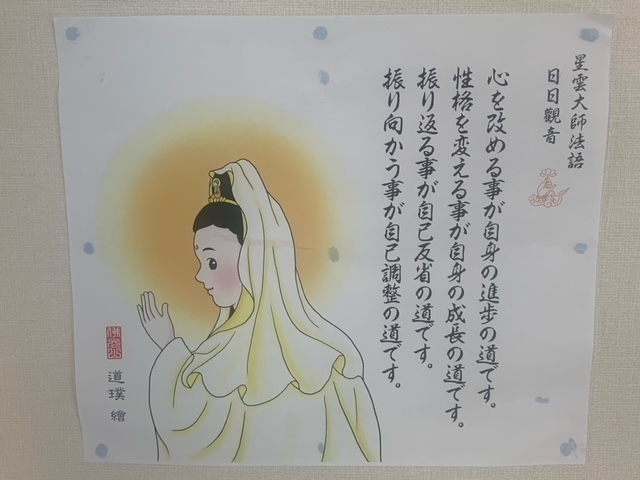 星雲大師法語
日日觀音
心を改める事が自身の進歩の道です。
性格を変える事が自身の成長の道です。
振り返る事が自己反省の道です。
振り向かう事が自己調整の道です。
道璞繪